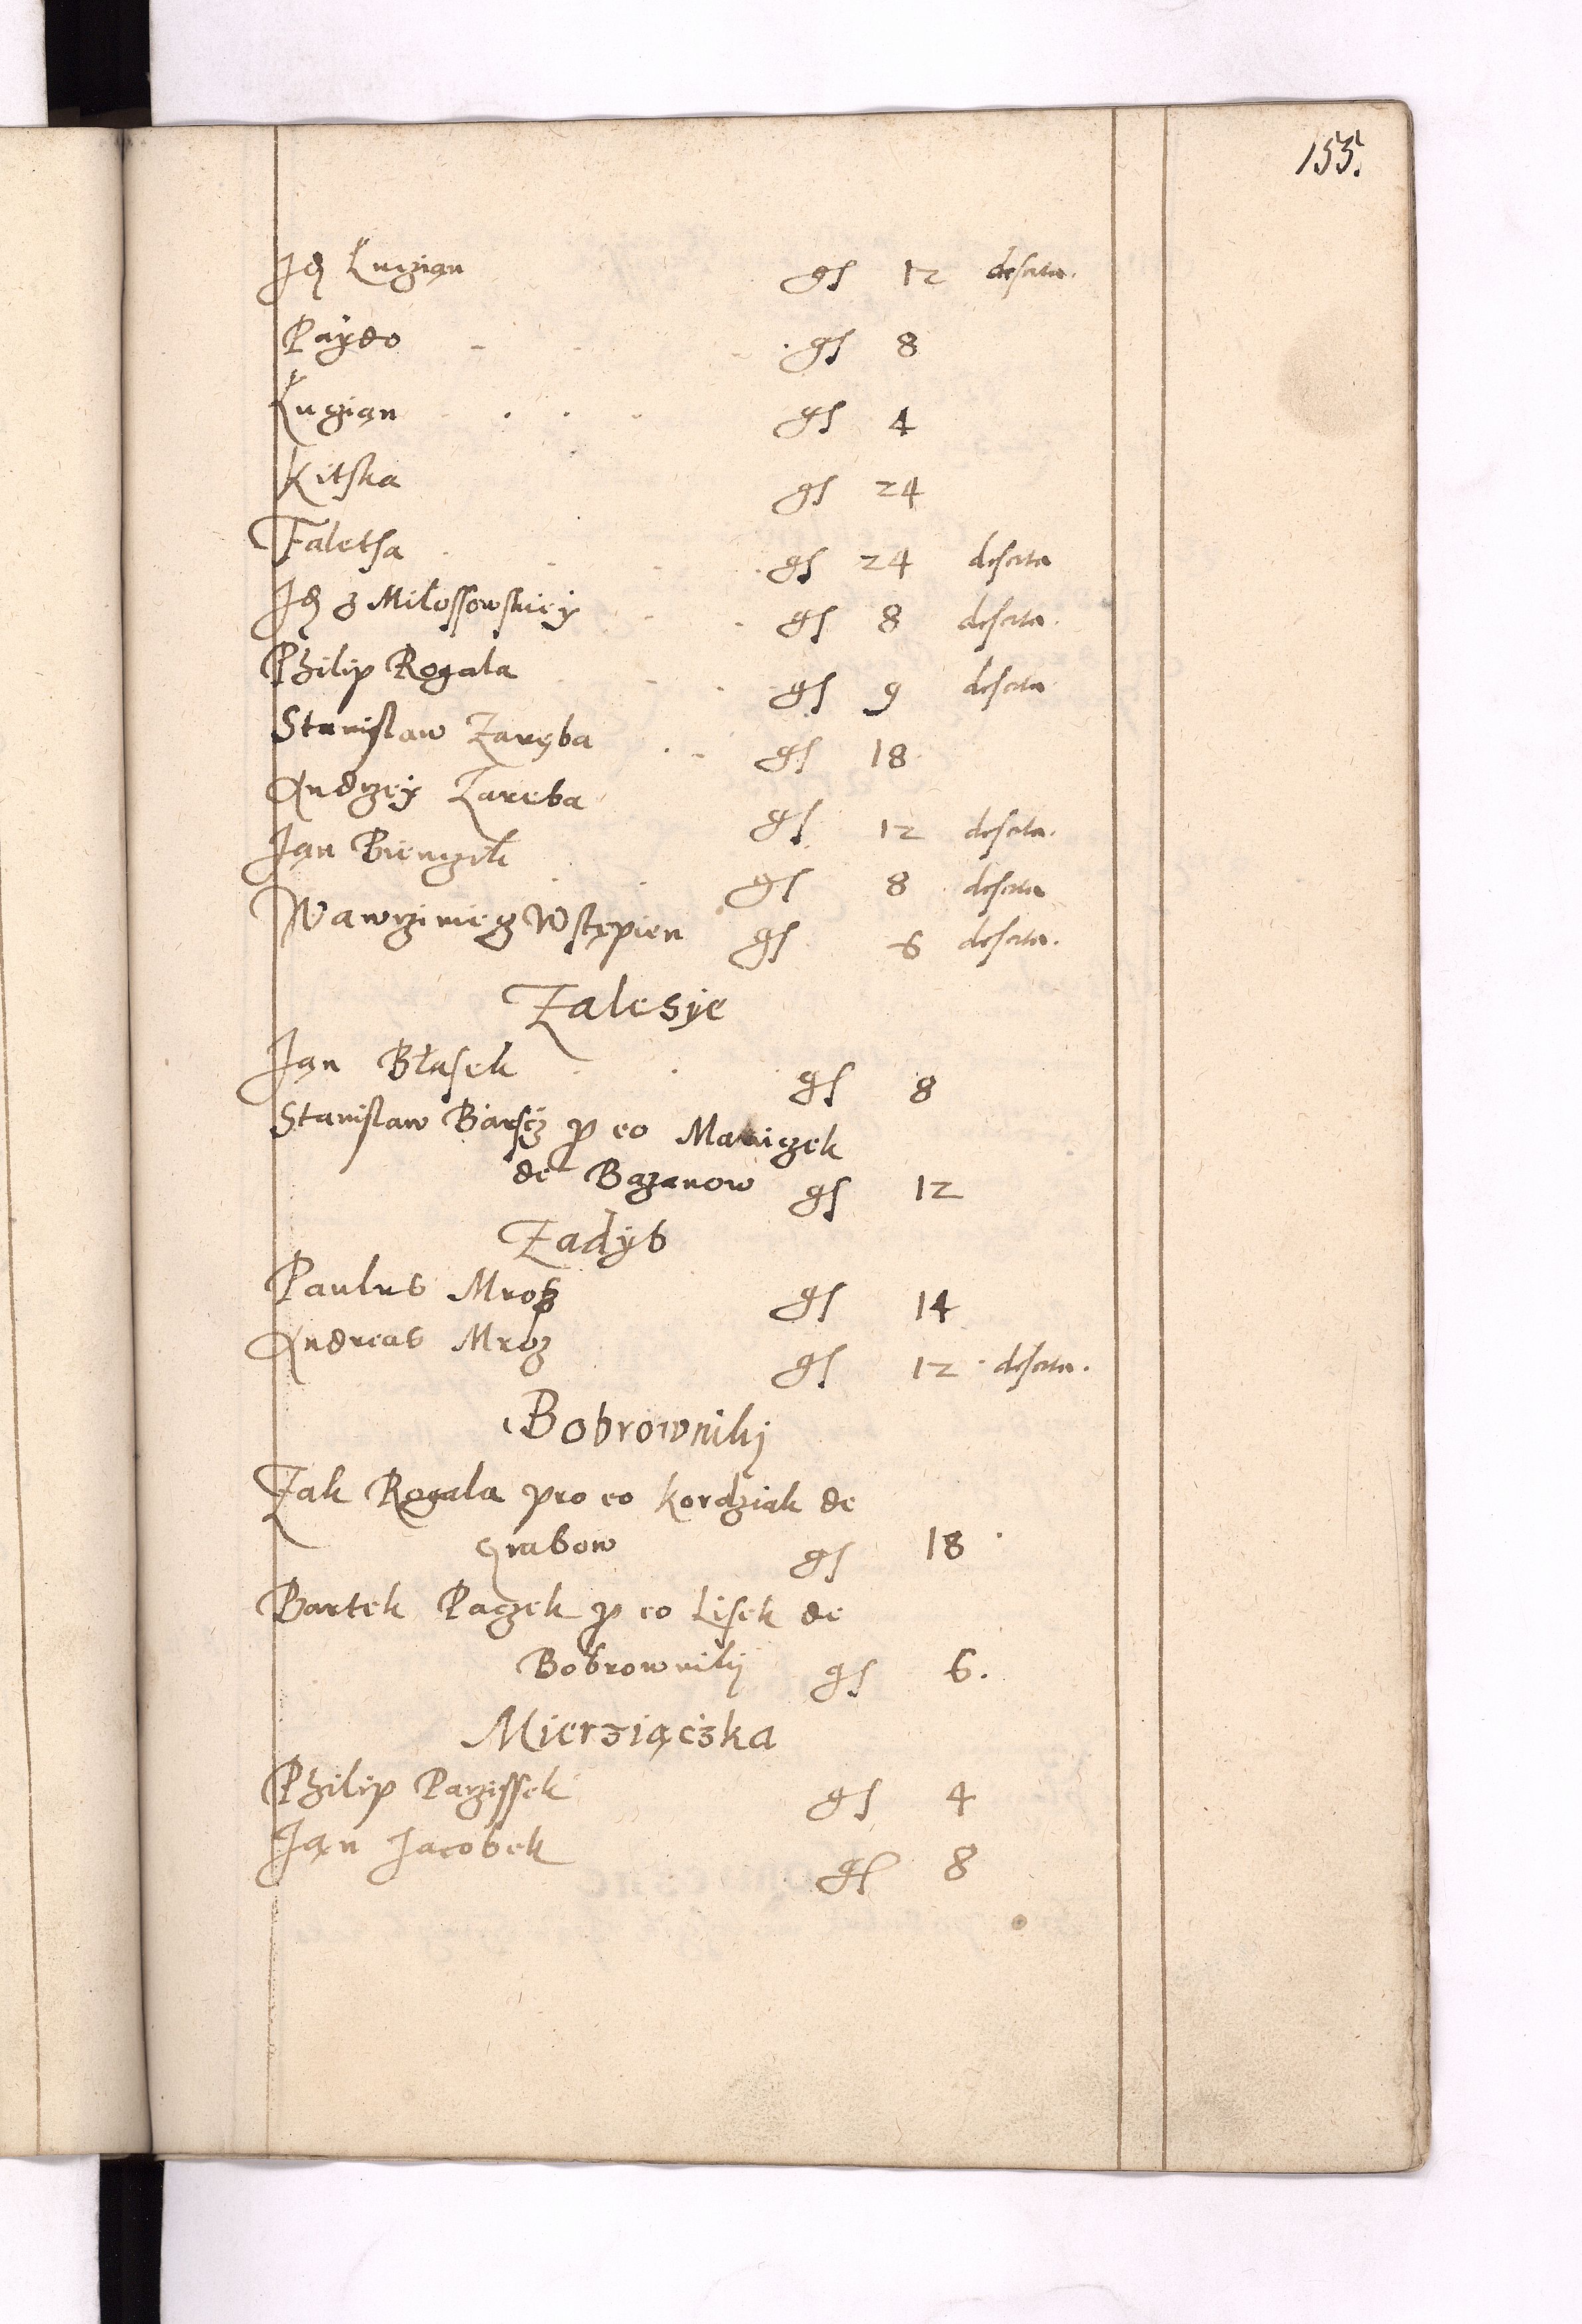 155.
Ją Łuczian gs 12 deserta.
Paydo gs 8
Łuczian gs 4
Kitska gs 24
Faletsa gs 24 deserta
Ją z Miłossowskiey gs 8 deserta.
Philip Rogala gs 9 deserta
Stanislaw Zaręba gs 18
Andrzey Zareba gs 12 deserta.
Jan gs 8 deserta
Wawrziniecz Wstępien gs 6 deserta.
Zalesÿe
Jan Błasek gs 8
Stanislaw Barscz p eo Maniczek
de Bazanow gs 12
Zadÿb
Paulus Mroz gs 14
Andreas Mroz gs 12 deserta.
Bobrownikj
Zak Rogala pro eo Kordziak de
Grabow gs 18
Bartek Paczek p eo Lisek de
Bobrownikj gs 6.
Mierziączka
Philip Parzissek gs 4
Jan Jacobek gs 8